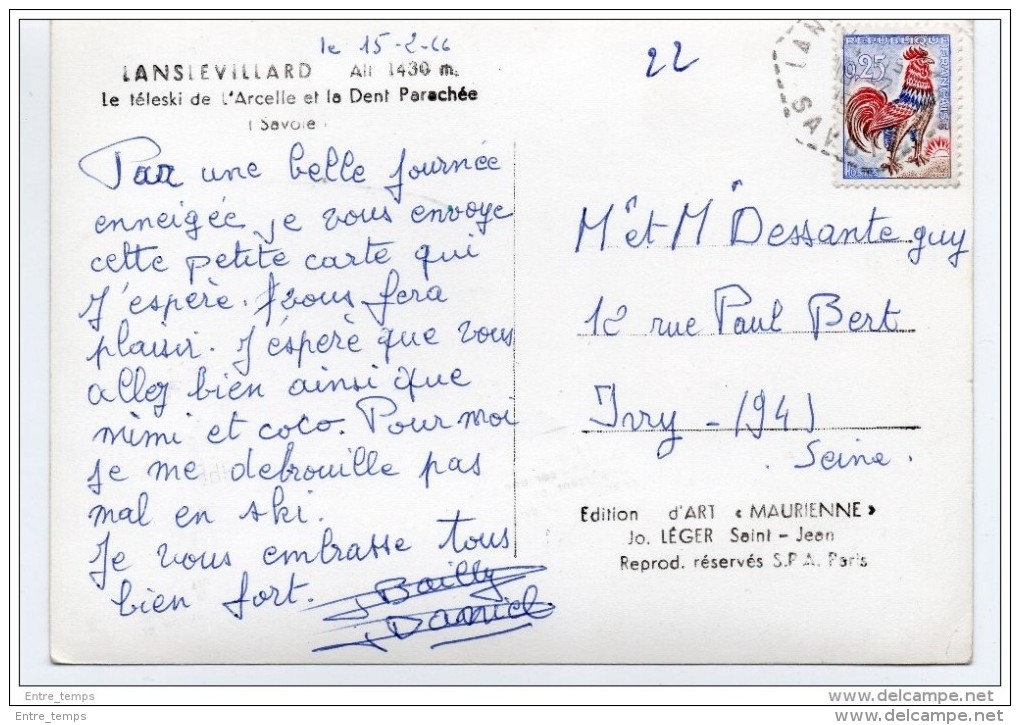 le 15-2-66
LANSLEVILLARD Alt 1430 m.
Le téleski de L'Arcelle et la Dent Parachée
(Savoie)
Par une belle journée
enneigée je vous envoye
cette petite carte qui
j'espère. vous fera
plaisir. J'éspère que vous
allez bien ainsi que
mimi et coco. Pour moi
je me debrouille pas
mal en ski.
Je vous embrasse tous
bien fort.
Bailly
Daniel
22
REPUBLIQUE FRANÇAISE
0,25
SAVOIE
Mr et Mr Dessante guy
12 rue Paul Bert
Ivry - (94)
Seine.
Edition d'ART « MAURIENNE »
Jo. LÉGER Saint - Jean
Reprod. réservés S.P.A. Paris
Entre_temps
Entre_temps
www.delcampe.net
www.delcampe.net